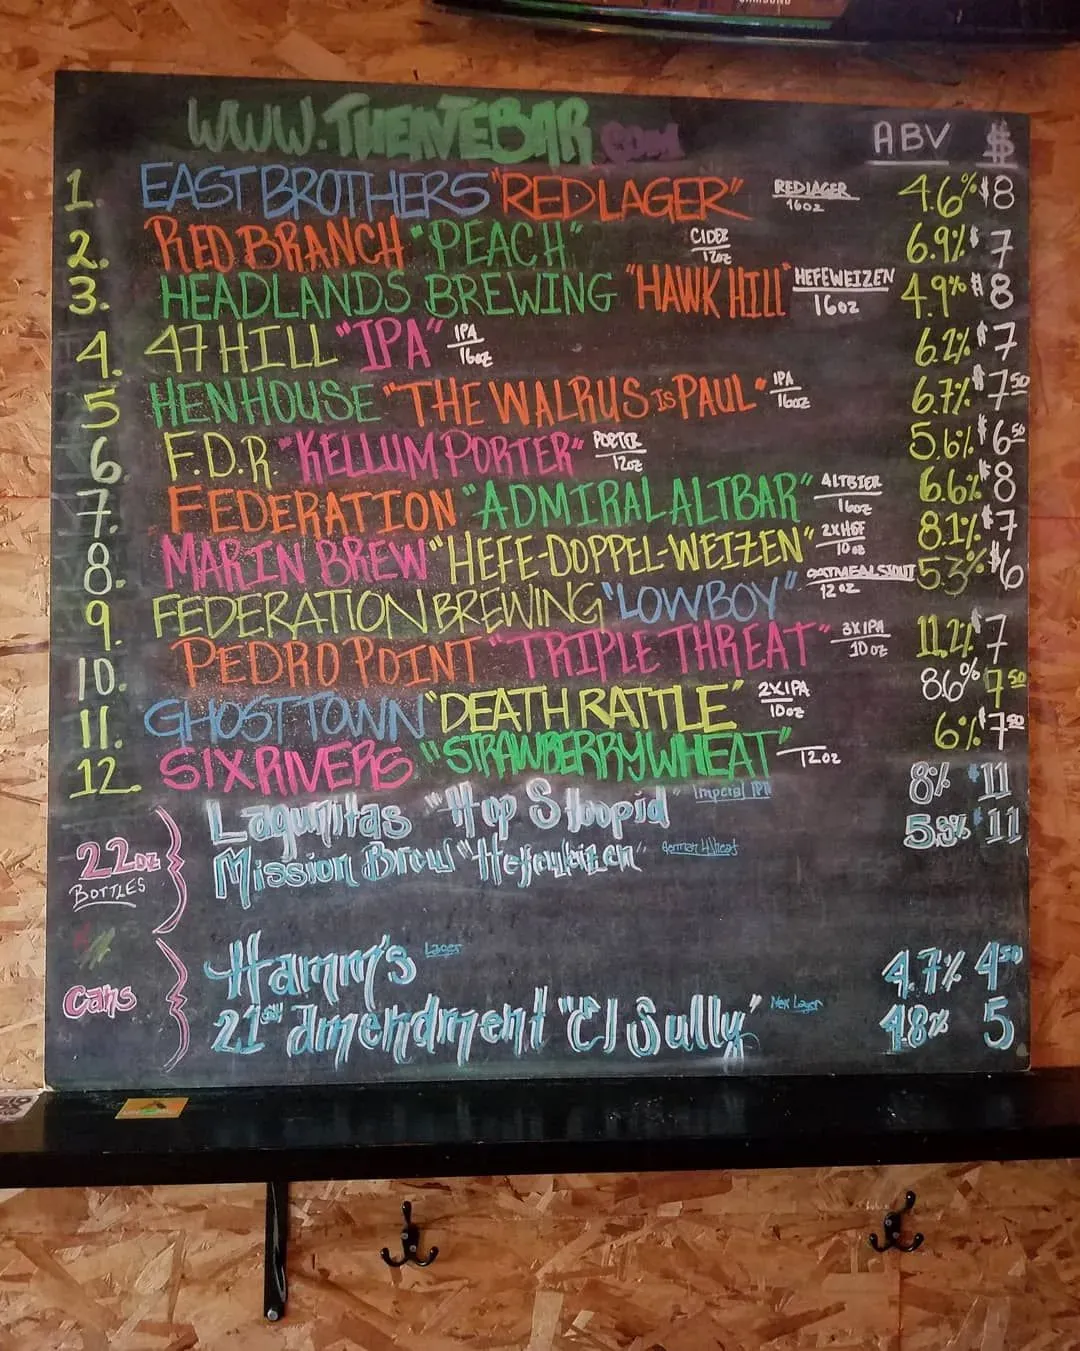 SAMSUNG
WWW.THENTEBAR.COM
ABV $
1. EAST BROTHERS "RED LAGER" RED LAGER 16oz 4.6% $8
2. RED BRANCH "PEACH" CIDER 12oz 6.9% $7
3. HEADLANDS BREWING "HAWK HILL" HEFEWEIZEN 16oz 4.9% $8
4. 47 HILL "IPA" IPA 16oz 6.2% $7
5 HENHOUSE "THE WALRUS is PAUL" IPA 16oz 6.7% $7 50
6. F.D.R. "KELLUM PORTER" PORTER 12oz 5.6% $6 50
7. FEDERATION "ADMIRAL ALTBAR" ALTBIER 16oz 6.6% $8
8. MARIN BREW "HEFE-DOPPEL-WEIZEN" 2XHEF 10oz 8.1% $7
9. FEDERATION BREWING "LOWBOY" OATMEAL STOUT 12oz 5.3% $6
10. PEDRO POINT "TRIPLE THREAT" 3XIPA 10oz 11.2% $7
11. GHOST TOWN "DEATH RATTLE" 2XIPA 10oz 8.6% 7 50
12. SIX RIVERS "STRAWBERRY WHEAT" 12oz 6% $7 50
22oz BOTTLES
Lagunitas "Hop Stoopid" Imperal IPA 8% $11
Mission Brew "Hefeweizen" German Wheat 11
cans
Hamm's Lager 4.7% 4 50
21st Amendment "El Sully" Mex Lager 4.8% 5